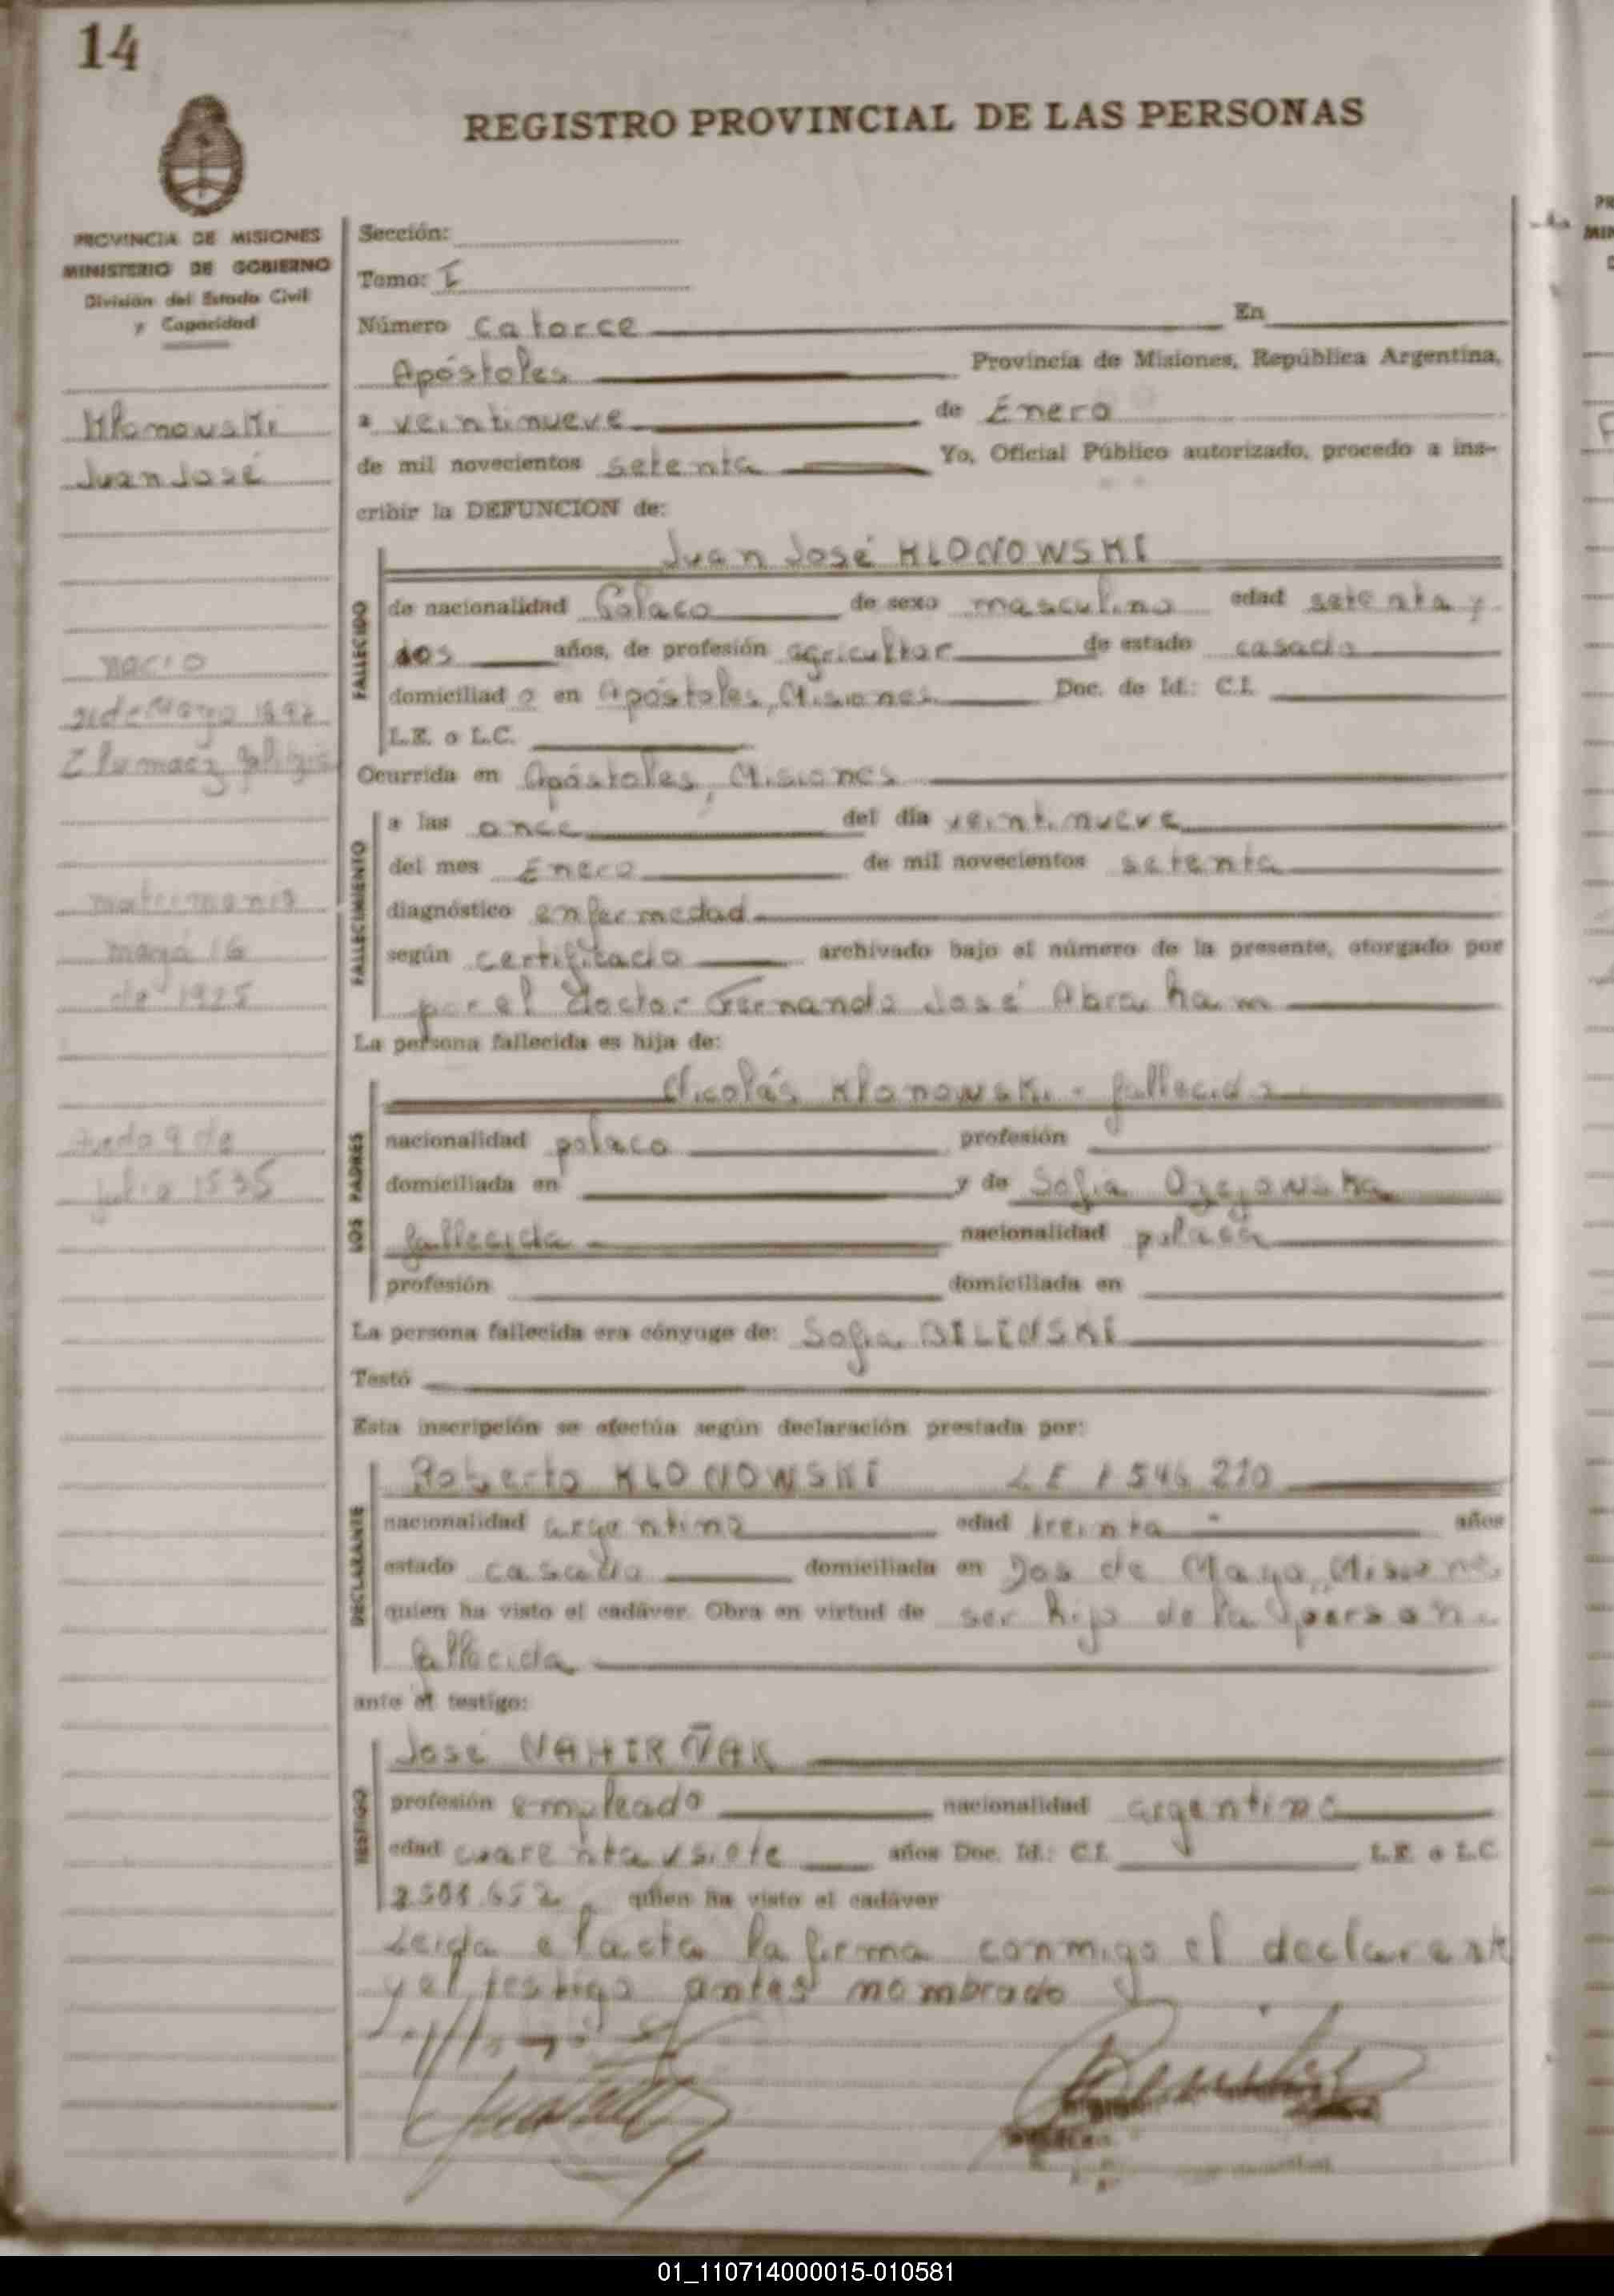 14
REGISTRO PROVINCIAL DE LAS PERSONAS
PROVINCIA DE MISIONES
MINISTERIO DE GOBIERNO
División del Estado Civil
y Capacidad
Klonowski
Juan José
nacio
de Mayo
matrimonio
mayo 16
de 1925
9 de
julio
Sección:
Tomo: I
Número Catorce En
Apóstoles Provincia de Misiones, República Argentina,
a veintinueve de Enero
de mil novecientos setenta Yo, Oficial Público autorizado, procedo a ins-
cribir la DEFUNCION de:
FALLECIDO
Juan José KLONOWSKI
de nacionalidad Polaco de sexo masculino edad setenta y
dos años, de profesión agricultor de estado casado
domiciliad o en Apóstoles, Misiones Doc. de Id.: C.I.
L.E. o L.C.
Ocurrida en Apóstoles, Misiones
FALLECIMIENTO
a las once del día veintinueve
del mes Enero de mil novecientos setenta
diagnóstico enfermedad
según certificado archivado bajo el número de la presente, otorgado por
por el doctor Fernando José Abraham
La persona fallecida es hija de:
LOS PADRES
Nicolás Klonowski - fallecido
nacionalidad polaco profesión
domiciliada en y de Sofia
fallecida nacionalidad polaca
profesión domiciliada en
La persona fallecida era cónyuge de: Sofia BILINSKI
Testó
Esta inscripción se efectúa según declaración prestada por:
DECLARANTE
Roberto KLONOWSKI LE
nacionalidad argentino edad treinta años
estado casado domiciliada en Dos de Mayo, Misiones
quien ha visto el cadáver. Obra en virtud de ser hijo de la persona
fallecida
ante el testigo:
TESTIGO
José NAHIRÑAK
profesión empleado nacionalidad argentino
edad cuarenta y siete años Doc. Id.: C.I. L.E. o L.C.
quien ha visto el cadáver
Leida el acta la firma conmigo el declarante
y el testigo antes nombrado
01_110714000015-010581